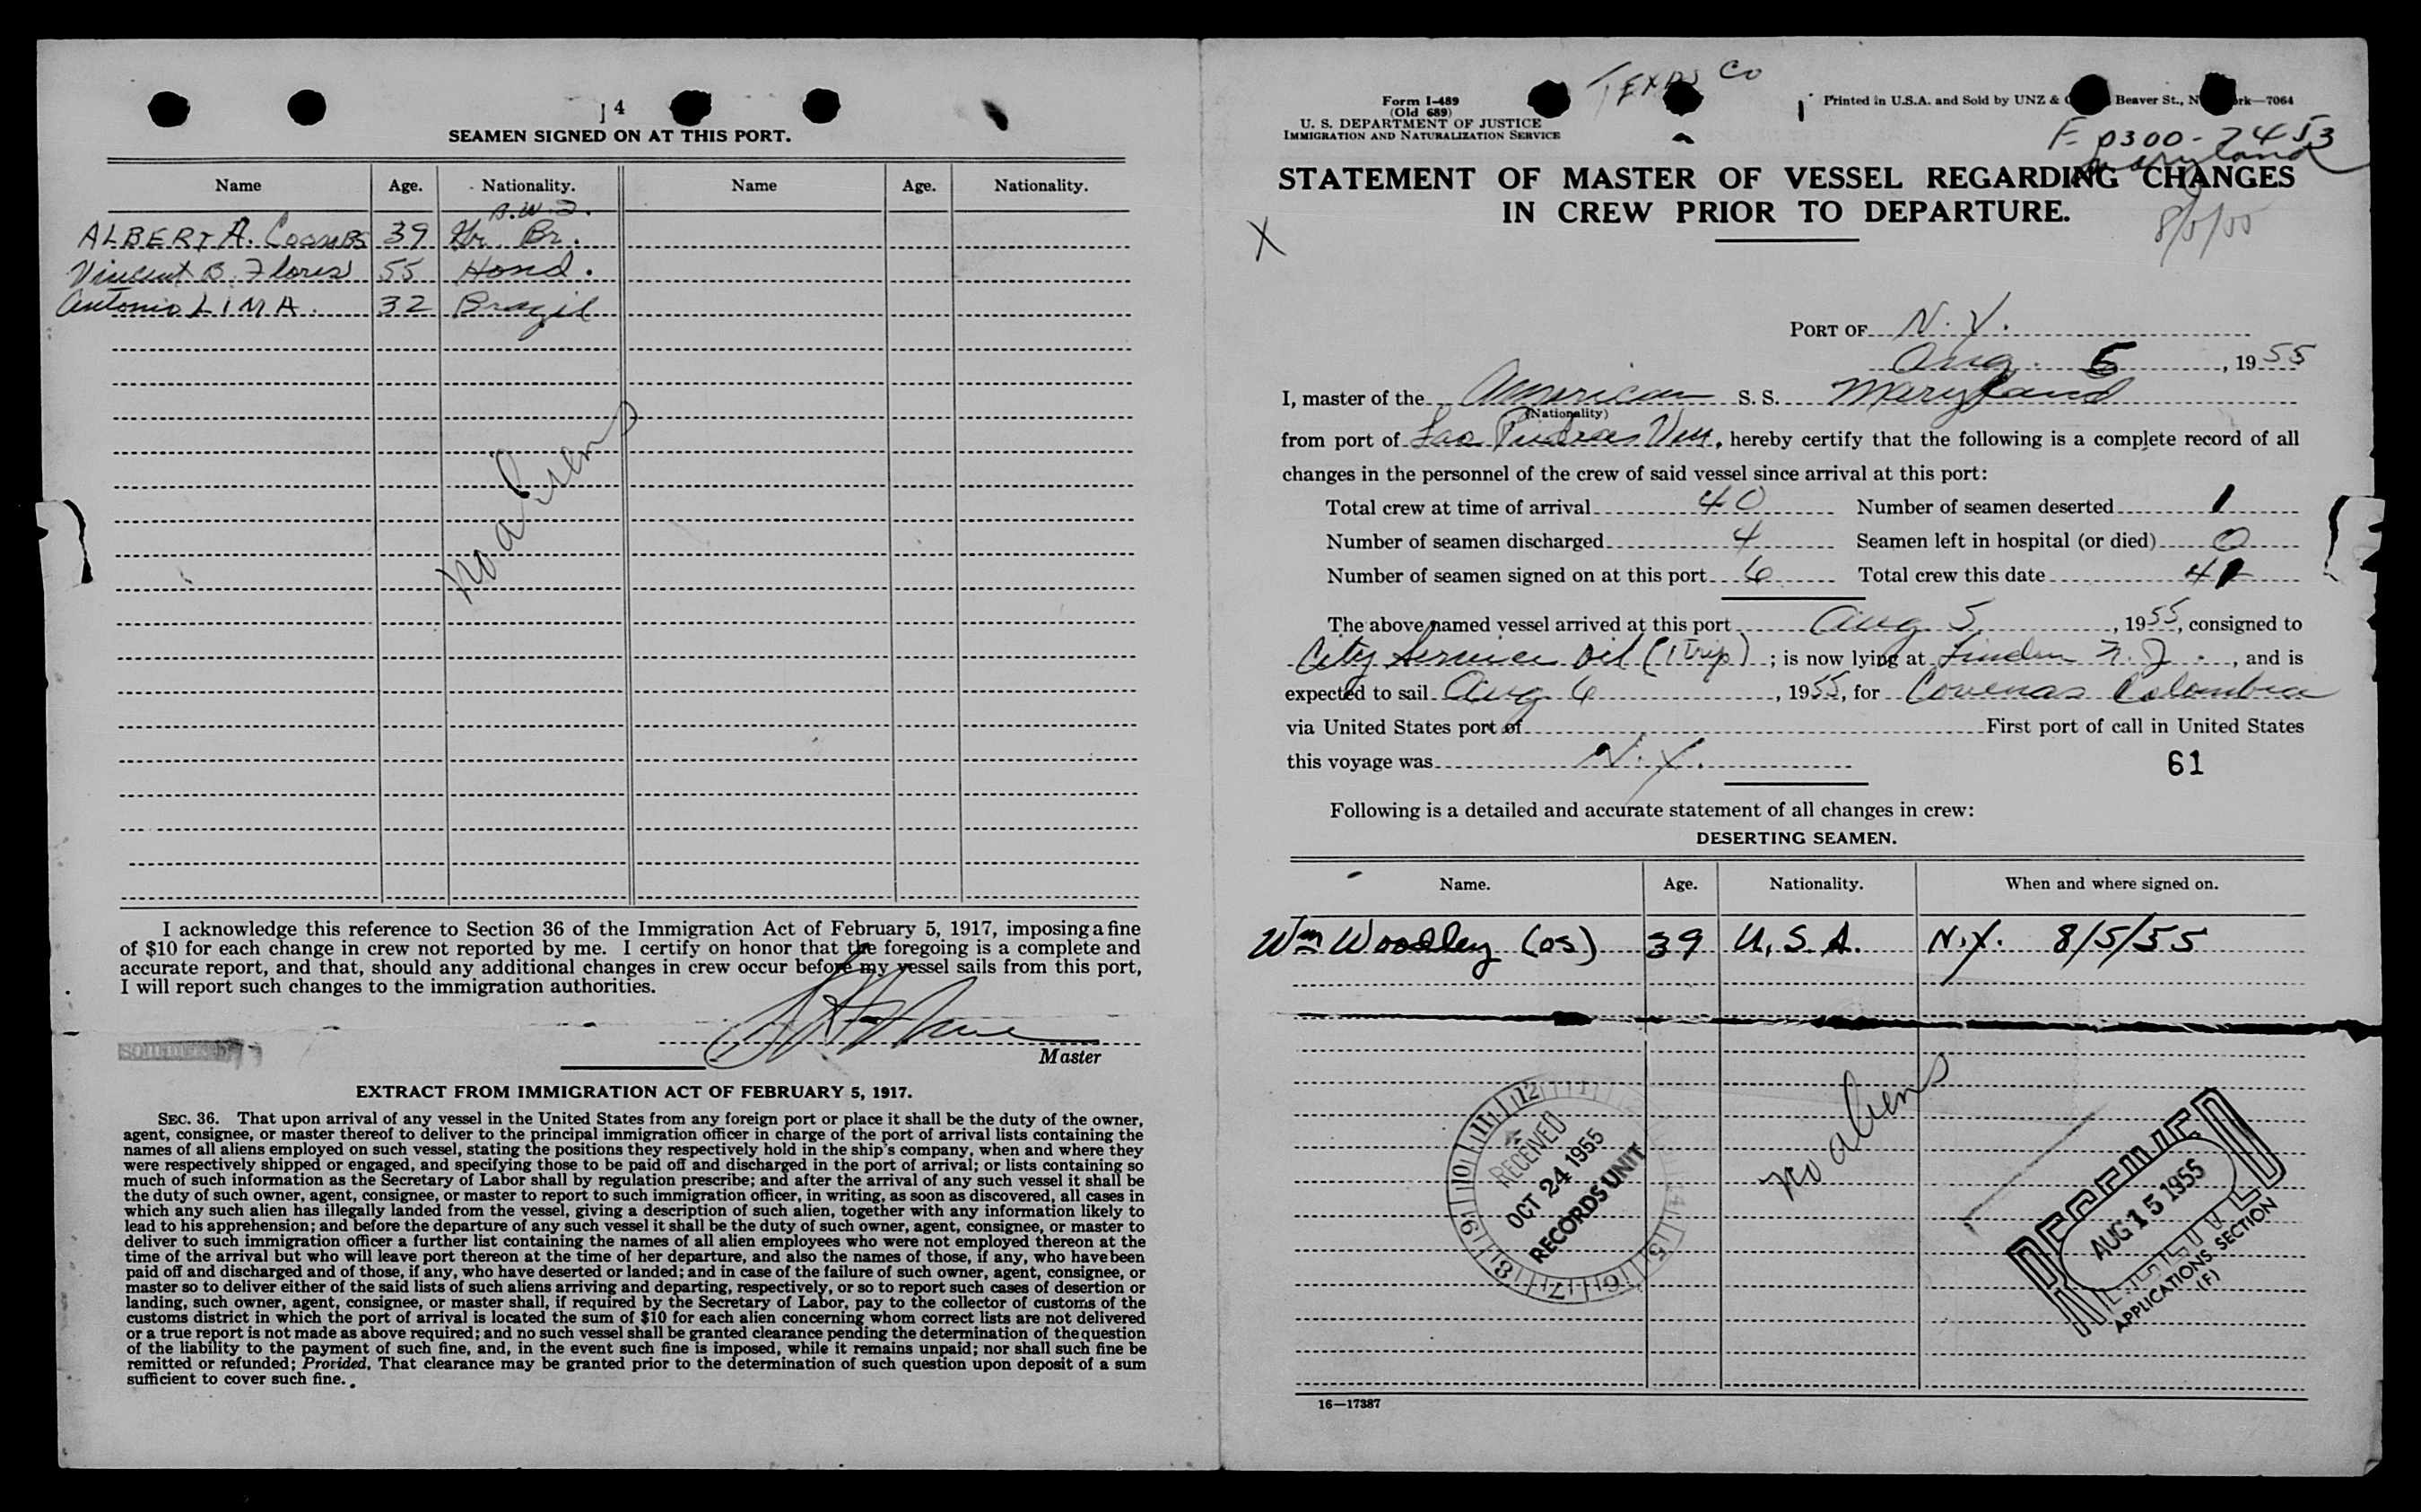 4
SEAMEN SIGNED ON AT THIS PORT.
Name Age. Nationality. Name Age. Nationality.
B.W.I.
ALBERT A. COOMBS 39 Gr. Br.
Vincent B. Flores 55 Hond.
Antonio LIMA. 32 Brazil
no aliens
I acknowledge this reference to Section 36 of the Immigration Act of February 5, 1917, imposing a fine
of $10 for each change in crew not reported by me. I certify on honor that the foregoing is a complete and
accurate report, and that, should any additional changes in crew occur before my vessel sails from this port,
I will report such changes to the immigration authorities.
Master
EXTRACT FROM IMMIGRATION ACT OF FEBRUARY 5, 1917.
SEC. 36. That upon arrival of any vessel in the United States from any foreign port or place it shall be the duty of the owner,
agent, consignee, or master thereof to deliver to the principal immigration officer in charge of the port of arrival lists containing the
names of all aliens employed on such vessel, stating the positions they respectively hold in the ship's company, when and where they
were respectively shipped or engaged, and specifying those to be paid off and discharged in the port of arrival; or lists containing so
much of such information as the Secretary of Labor shall by regulation prescribe; and after the arrival of any such vessel it shall be
the duty of such owner, agent, consignee, or master to report to such immigration officer, in writing, as soon as discovered, all cases in
which any such alien has illegally landed from the vessel, giving a description of such alien, together with any information likely to
lead to his apprehension; and before the departure of any such vessel it shall be the duty of such owner, agent, consignee, or master to
deliver to such immigration officer a further list containing the names of all alien employees who were not employed thereon at the
time of the arrival but who will leave port thereon at the time of her departure, and also the names of those, if any, who have been
paid off and discharged and of those, if any, who have deserted or landed; and in case of the failure of such owner, agent, consignee, or
master so to deliver either of the said lists of such aliens arriving and departing, respectively, or so to report such cases of desertion or
landing, such owner, agent, consignee, or master shall, if required by the Secretary of Labor, pay to the collector of customs of the
customs district in which the port of arrival is located the sum of $10 for each alien concerning whom correct lists are not delivered
or a true report is not made as above required; and no such vessel shall be granted clearance pending the determination of the question
of the liability to the payment of such fine, and, in the event such fine is imposed, while it remains unpaid; nor shall such fine be
remitted or refunded; Provided, That clearance may be granted prior to the determination of such question upon deposit of a sum
sufficient to cover such fine.
TEXAS CO
Form I-489
(Old 689)
U. S. DEPARTMENT OF JUSTICE
IMMIGRATION AND NATURALIZATION SERVICE
Printed in U.S.A. and Sold by UNZ & Beaver St., N rk—7064
F-0300-7453
Maryland
STATEMENT OF MASTER OF VESSEL REGARDING CHANGES
IN CREW PRIOR TO DEPARTURE.
X
8/5/55
PORT OF N.Y.
Aug. 5, 1955
I, master of the American S. S. Maryland
(Nationality)
from port of Las Piedras Ven, hereby certify that the following is a complete record of all
changes in the personnel of the crew of said vessel since arrival at this port:
Total crew at time of arrival 40 Number of seamen deserted 1
Number of seamen discharged 4 Seamen left in hospital (or died) 0
Number of seamen signed on at this port 6 Total crew this date 41
The above named vessel arrived at this port Aug 5, 1955, consigned to
City Service Oil (1 trip); is now lying at Linden N.J., and is
expected to sail Aug 6, 1955, for Covenas Colombia
via United States port of First port of call in United States
this voyage was N.Y.
61
Following is a detailed and accurate statement of all changes in crew:
DESERTING SEAMEN.
Name. Age. Nationality. When and where signed on.
Wm Woodley (os) 39 U.S.A. N.Y. 8/5/55
no aliens
RECEIVED
OCT 24 1955
RECORDS UNIT
RECEIVED
AUG 15 1955
APPLICATIONS SECTION
(F)
16—17387